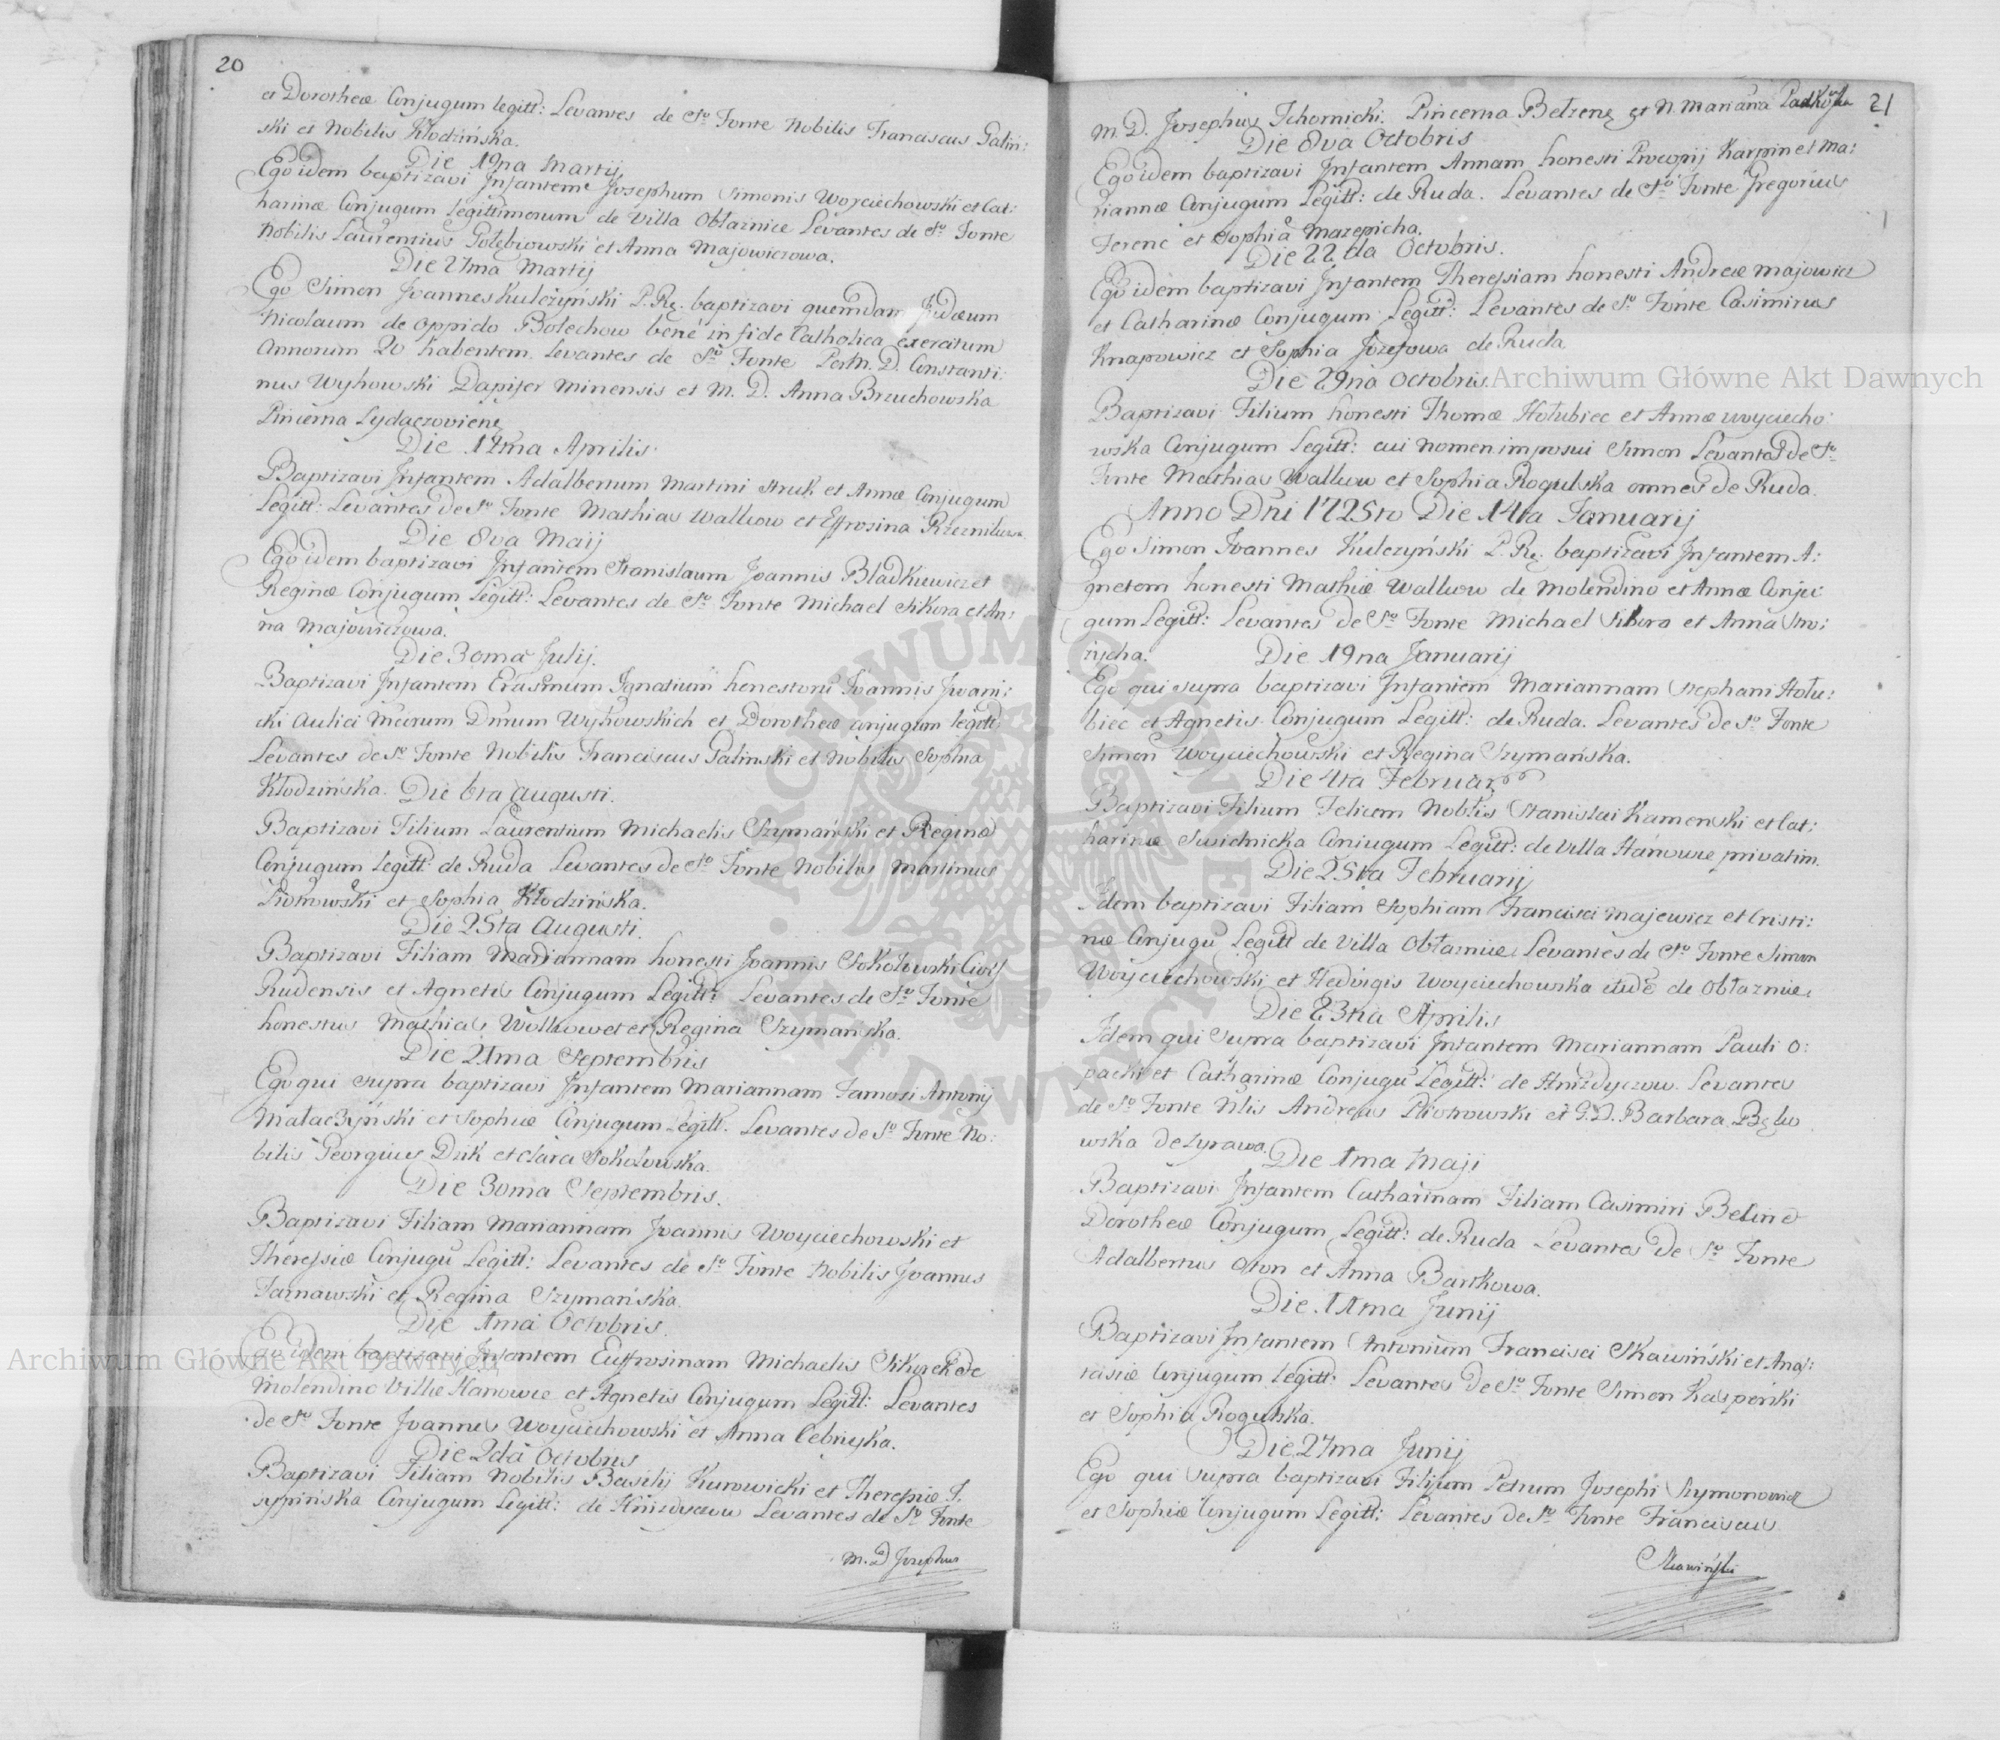 20
et Dorotheæ Conjugum legitt: Levantes de So Fonte Nobilis Franciscus Galin:
ski et Nobilis Kłodzińska.
Die 19na Martij
Ego idem baptizavi Infantem Josephum Simonis Woyciechowski et Cat:
harinæ Conjugum legittimorum de Villa Obłaznice Levantes de So Fonte
Nobilis Laurentius Gołębiowski et Anna Majowiczowa.
Die 27ma Martij
Ego Simon Joannes Kulczyński P. Rę. baptizavi quemdam Judæum
Nicolaum de oppido Bolechow bene in fide Catholica
Annorum 20 habentem. Levantes de So Fonte M. D. Constanti:
nus Wyhowski Dapifer Minensis et M. D. Anna Brzuchowska
Pincerna Zydaczoviene
Die 14ma Aprilis
Baptizavi Infantem Adalbertum Martini Struk et Annæ Conjugum
Legitt: Levantes de So Fonte Mathias Walkow et Effrosina
Die 8va Maij
Ego idem baptizavi Infantem Stanislaum Joannis Bladkiewicz et
Reginæ Conjugum Legitt: Levantes de So Fonte Michael Sikora et An:
na Majowiczowa.
Die 30ma Julij.
Baptizavi Infantem Erasmum Ignatium honestorū Joannis Iwani:
cki Aulici Dnum Wyhowskich et Dorotheæ conjugum legitt
Levantes de So Fonte Nobilis Franciscus Galinski et Nobilis Sophia
Kłodzińska. Die 6ta Augusti.
Baptizavi Filium Laurentium Michaelis Szymański et Reginæ
Conjugum legitt: de Ruda Levantes de So Fonte Nobilis Martinus
Piotrowski et Sophia Kłodzińska.
Die 25ta Augusti.
Baptizavi Filiam Mariannam honesti Joannis Sokołowski
Rudensis et Agnetis Conjugum Legitt: Levantes de So Fonte
honestus Mathias et Regina Szymańska.
Die 21ma Septembris
Ego qui supra baptizavi Infantem Mariannam Famosi Antonij
Małaczyński et Sophiæ Conjugum Legitt. Levantes de So Fonte No:
bilis Georgius Duk et Clara Sokołowska.
Die 30ma Septembris.
Baptizavi Filiam Mariannam Joannis Woyciechowski et
Theressiæ Conjugū Legitt: Levantes de So Fonte Nobilis Joannes
Tarnawski et Regina Szymańska.
Die 1ma Octobris.
Ego idem baptizavi Infantem Euffrosinam Michaelis Sikorek de
Molendino Villæ Hanowce et Agnetis Conjugum Legitt: Levantes
de So Fonte Joannes Woyciechowski et Anna
Die 2da Octobris
Baptizavi Filiam Nobilis Basilij Kurowicki et Theressiæ J.
Conjugum Legitt: de Hnizdyczow Levantes de So Fonte
M. D Josephus
21
M. D. Josephus Tchornicki. Pincerna Bełzenę et N. Mariāna
Die 8va Octobris
Ego idem baptizavi Infantem Annam, honesti Procopij Karpin et Ma:
riannæ Conjugum Legitt: de Ruda. Levantes de So Fonte Gregorius
Ferenc et Sophia Mazepicha.
Die 22da Octobris.
Ego idem baptizavi Infantem Theressiam honesti Andreæ Majowicz
et Catharinæ Conjugum Legitt: Levantes de So Fonte Casimirus
Knapowicz et Sophia Jozefowa de Ruda
Die 29na Octobris.
Baptizavi Filium honesti Thomæ Hołubiec et Annæ Woyciecho:
wska Conjugum Legitt: cui nomen imposui Simon Levantes de So
Fonte Mathias Walkow et Sophia Rogulska omnes de Ruda.
Anno Dni 1725to Die 14ta Januarij
Ego Simon Joannes Kulczyński P. Rę. baptizavi Infantem A:
gnetem honesti Mathiæ Walkow de Molendino et Annæ Conju:
gum Legitt: Levantes de So Fonte Michael Sikora et Anna
Die 19na Januarij
Ego qui supra baptizavi Infantem Mariannam Stephani Hołu:
biec et Agnetis Conjugum Legitt: de Ruda. Levantes de So Fonte
Simon Woyciechowski et Regina Szymańska.
Die 4ta Februar
Baptizavi Filium Felicem Nobilis Stanislai Kamenski et Cat:
harinæ Swietnicka Conjugum Legitt: de Villa Hanowce privatim.
Die 25ta Februarij
Idem baptizavi Filiam Sophiam Francisci Majewicz et Cristi:
næ Conjugū Legitt de Villa Obłaznice Levantes de So Fonte Simon
Woyciechowski et Hedvigis Woyciechowska de Obłaznice
Die 23tia Aprilis
Idem qui supra baptizavi Infantem Mariannam Pauli O:
packi et Catharinæ Conjugū Legitt: de Hnizdyczow. Levantes
de So Fonte Nlis Andreas Piotrowski et G. D. Barbara
wska de Zyrawa.
Die 1ma Maji
Baptizavi Infantem Catharinam Filiam Casimiri
Dorotheæ Conjugum Legitt: de Ruda Levantes de So Fonte
Adalbertus et Anna Bartkowa.
Die 11ma Junij
Baptizavi Infantem Antonium Francisci Skawiński et Anas:
tasiæ Conjugum Legitt: Levantes de So Fonte Simon Kasperski
et Sophia Rogulska.
Die 27ma Junij
Ego qui supra baptizavi Filium Petrum Josephi Szymonowicz
et Sophiæ Conjugum Legitt: Levantes de So Fonte Franciscus
Skawiński
Archiwum Główne Akt Dawnych
Archiwum Główne Akt Dawnych
ARCHIWUM GŁÓWNE AKT DAWNYCH